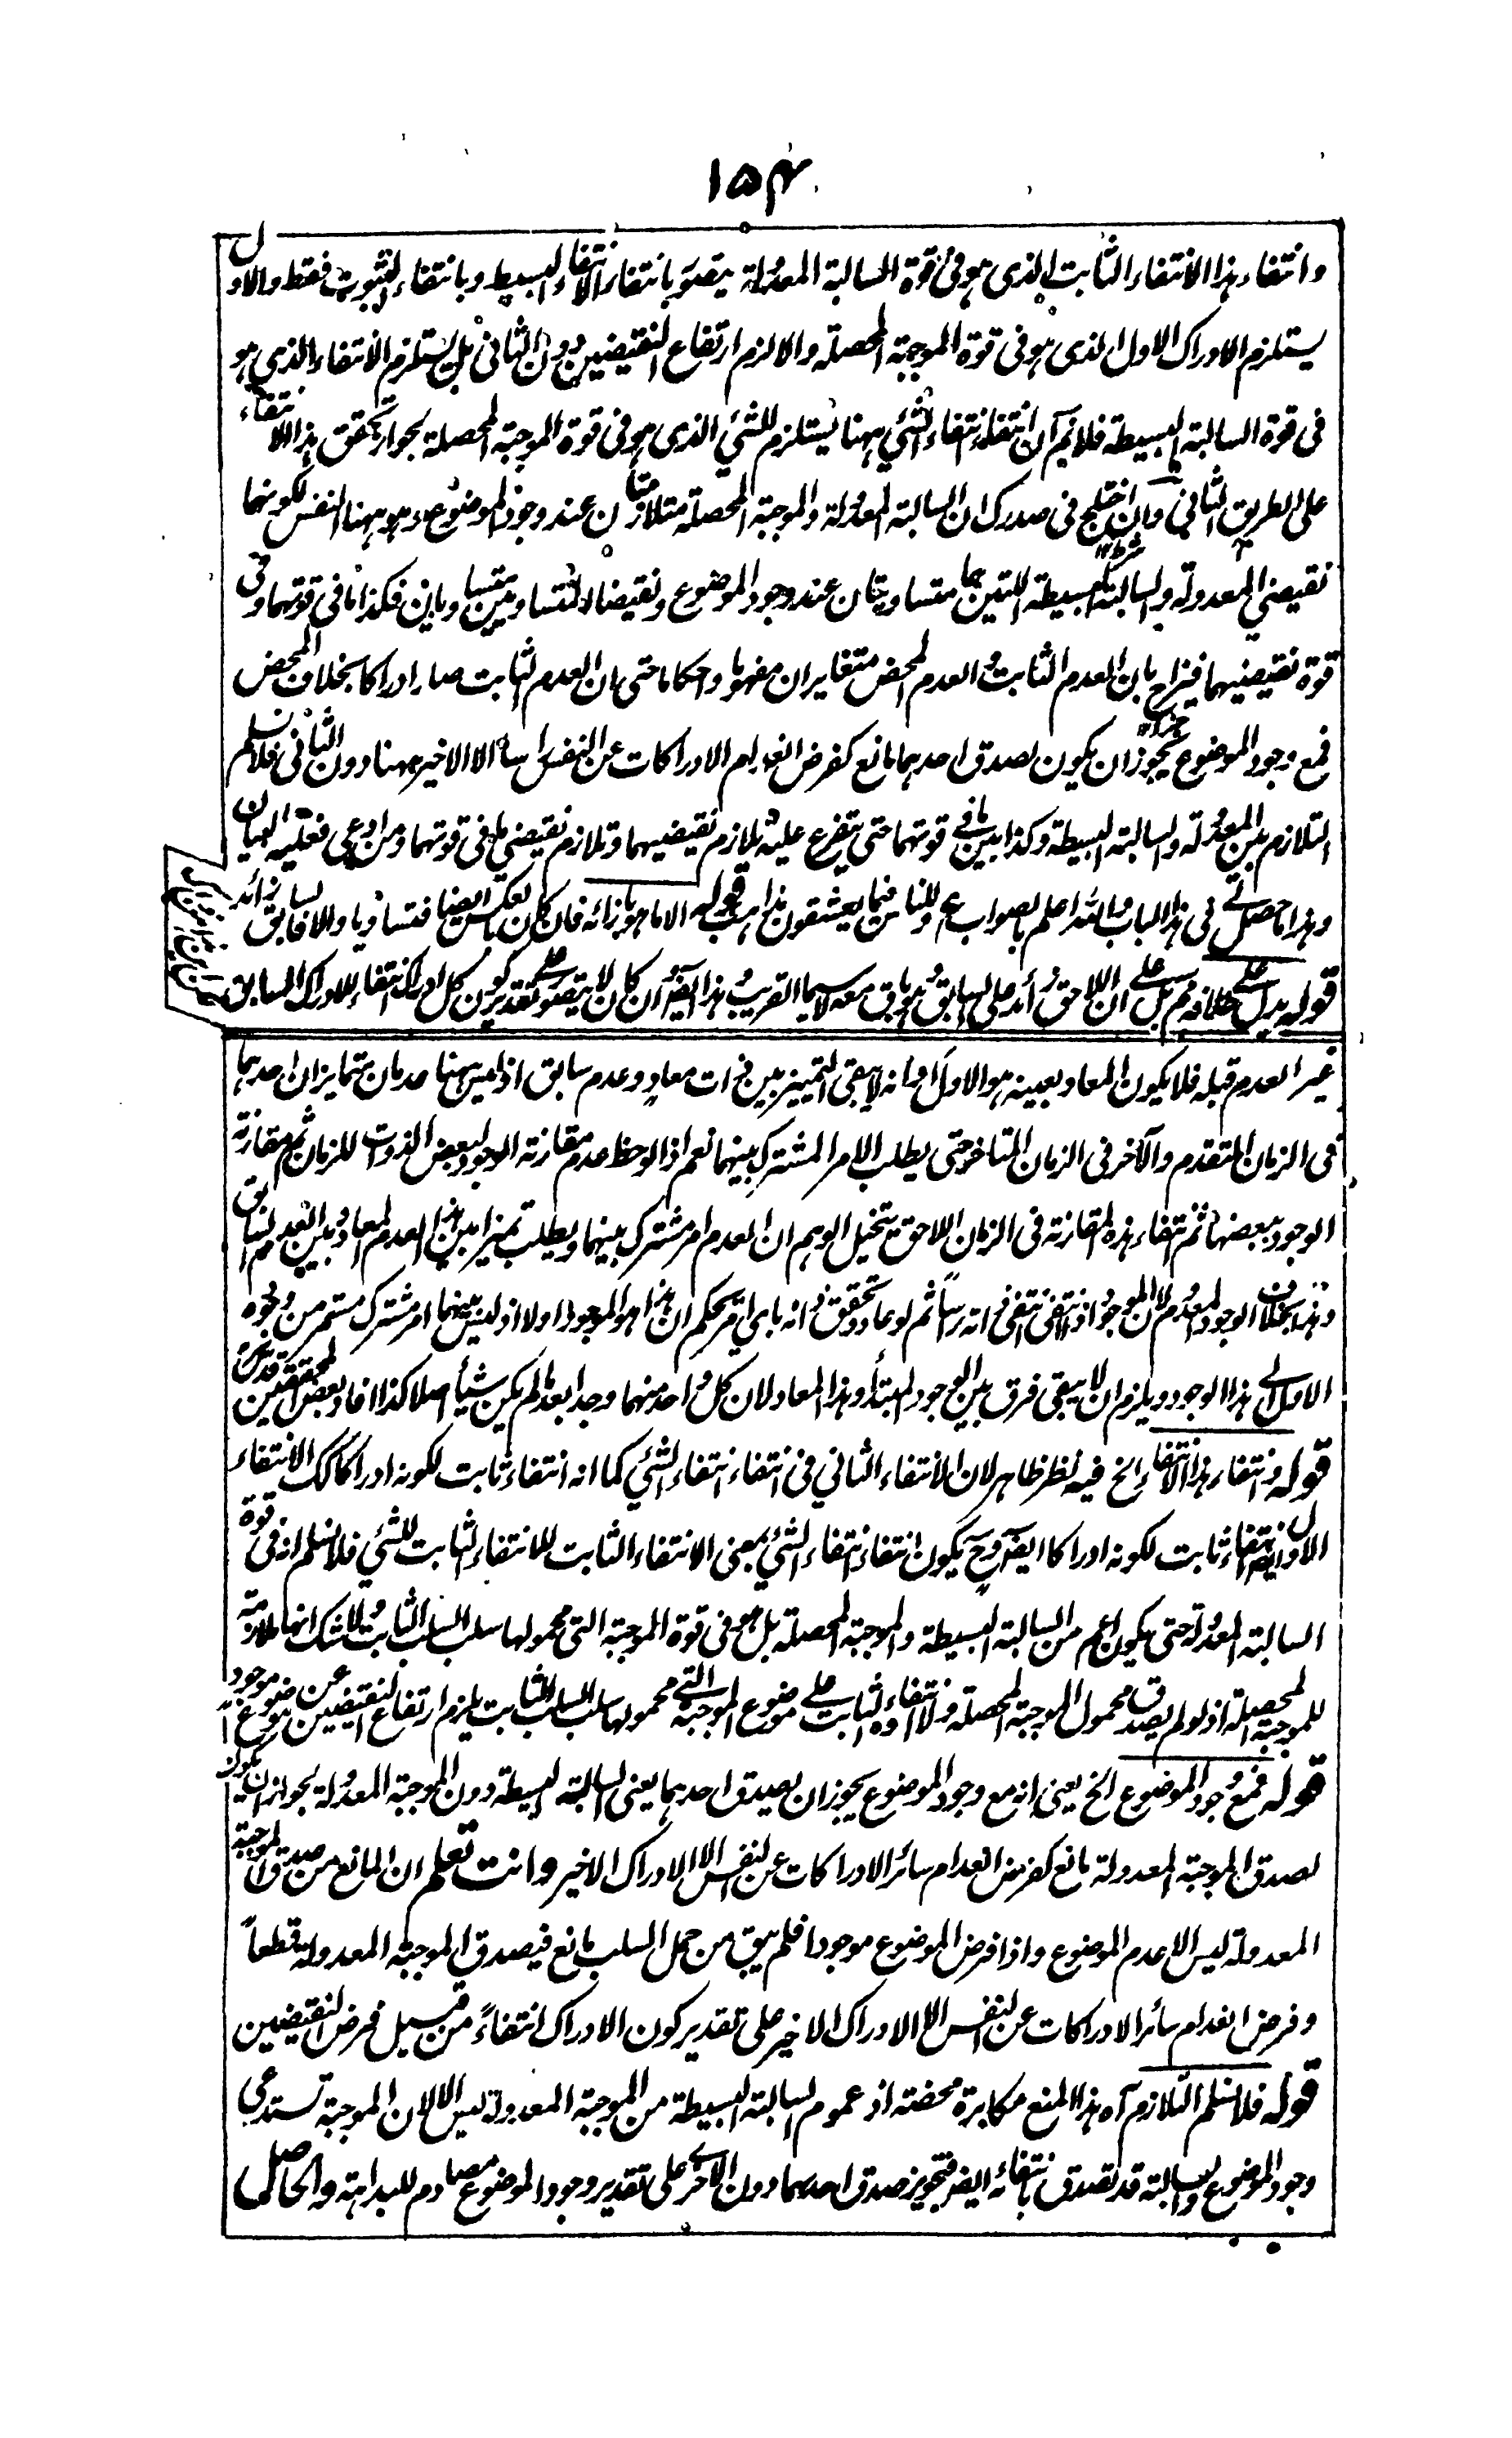 ١٥٤
وانتفاء هذا الانتفاء الثابت الذى هو فى قوة السالبة المعدولة يتصور بانتفاء الانتفاء البسيط وبانتفاء الثبوت فقط والاول
يستلزم الادراك الاول الذى هو فى قوة الموجبة المحصلة والا لزم ارتفاع النقيضين دون الثانى بل يستلزم الانتفاء الذى هو
فى قوة السالبة البسيطة فلا نم ان انتفاء انتفاء الشئ ههنا يستلزم للشئ الذى هو فى قوة الموجبة المحصلة لجواز تحقق هذا الانتفاء
على الطريق الثانى وان اختلج فى صدرك ان السالبة المعدولة والموجبة المحصلة متلازمتان عند وجود الموضوع وهو ههنا النفس لكونهما
نقيضى المعدولة والسالبة البسيطة اللتين هما متساويتان عند وجود الموضوع ونقيضا المتساويين متساويان فكذا ما فى قوتهما وفى
قوة نقيضيهما فيزاح بان العدم الثابت والعدم المحض متغايران مفهوما واحكاما حتى ان العدم الثابت صار ادراكا بخلاف المحض
فمع وجود الموضوع يجوز ان يكون لصدق احدهما مانع كفرض انعدام الادراكات عن النفس اسا الا الاخير ههنا دون الثانى فلا نسلم
التلازم بين المعدولة والسالبة البسيطة وكذا بين ما فى قوتهما حتى يتفرع عليه تلازم نقيضيهما وتلازم نقيضى ما فى قوتهما ومن ادعى فعليه البيان
وهذا ما حصل لى فى هذا الباب والله اعلم بالصواب ع وللناس فيما يعشقون مذاهب قوله الا ما هو بازائه فان كان بالعكس ايضا فتساويا والا فالسابق زائد
قوله يدل على خلافه نعم يدل على ان اللاحق زائد على السابق وهو باق معه لا سيما القريب هذا ايضا وان كان لا يتصور على تقدير كون كل ادراك انتفاء للادراك السابق
غير العدم قبله فلا يكون المعاد بعينه هو الاول وانه لا يبقى التميز بين ذات معاد وعدم سابق اذ ليس ههنا عدمان يتمايزان احدهما
فى الزمان المتقدم والآخر فى الزمان المتاخر حتى يطلب الامر المشترك بينهما نعم اذا لوحظ عدم مقارنة الوجود لبعض الذوات للزمان ثم مقارنة
الوجود ببعضها ثم انتفاء هذه المقارنة فى الزمان اللاحق يتخيل الوهم ان العدم امر مشترك بينهما ويطلب تميزا بين هذا العدم المعاد وبين العدم السابق
وهذا بخلاف الوجود المعدوم لان الموجود اذا انتفى انتفى ذاته رأسا ثم لو عاد وتحقق ذاته باى امر يحكم ان هذا هو الموجود اولا اذ ليس بينهما امر مشترك مستمر من وجوه
الاول الى هذا الوجود ويلزم ان لا يبقى فرق بين الوجود المبتدأ وهذا المعاد لان كل واحد منهما وجد بعد ما لم يكن شيأ اصلا كذا افاد بعض المحققين قدس سره
قوله وانتفاء هذا الانتفاء الخ فيه نظر ظاهر لان الانتفاء الثانى فى انتفاء انتفاء الشئ كما انه انتفاء ثابت لكونه ادراكا كذلك الانتفاء
الاول ايضا انتفاء ثابت لكونه ادراكا ايضا وح يكون انتفاء انتفاء الشئ بمعنى الانتفاء الثابت للانتفاء الثابت للشئ فلا نسلم انه فى قوة
السالبة المعدولة حتى يكون اعم من السالبة البسيطة والموجبة المحصلة بل هو فى قوة الموجبة التى محمولها سلب السلب الثابت ولا شك انها ملازمة
للموجبة المحصلة اذ لو لم يصدق محمول الموجبة المحصلة ولا انتفاء الثابت على موضوع الموجبة التى محمولها سلب السلب الثابت يلزم ارتفاع النقيضين عن موضوع موجود
قوله فمع وجود الموضوع الخ يعنى انه مع وجود الموضوع يجوز ان يصدق احدهما يعنى السالبة البسيطة دون الموجبة المعدولة لجواز ان يكون
لصدق الموجبة المعدولة مانع كفرض انعدام سائر الادراكات عن النفس الا الادراك الاخير وانت تعلم ان المانع من صدق الموجبة
المعدولة ليس الا عدم الموضوع واذا فرض الموضوع موجودا فلم يبق من حمل السلب مانع فيصدق الموجبة المعدولة قطعاً
وفرض انعدام سائر الادراكات عن النفس الا الادراك الاخير على تقدير كون الادراك انتفاءً من قبيل فرض النقيضين
قوله فلا نسلم التلازم آه هذا المنع مكابرة محضة اذ عموم السالبة البسيطة من الموجبة المعدولة ليس الا لان الموجبة تستدعى
وجود الموضوع والسالبة قد تصدق بانتفائه ايضا فتجويز صدق احدهما دون الاخرى على تقدير وجود الموضوع مصادم للبداهة والحاصل